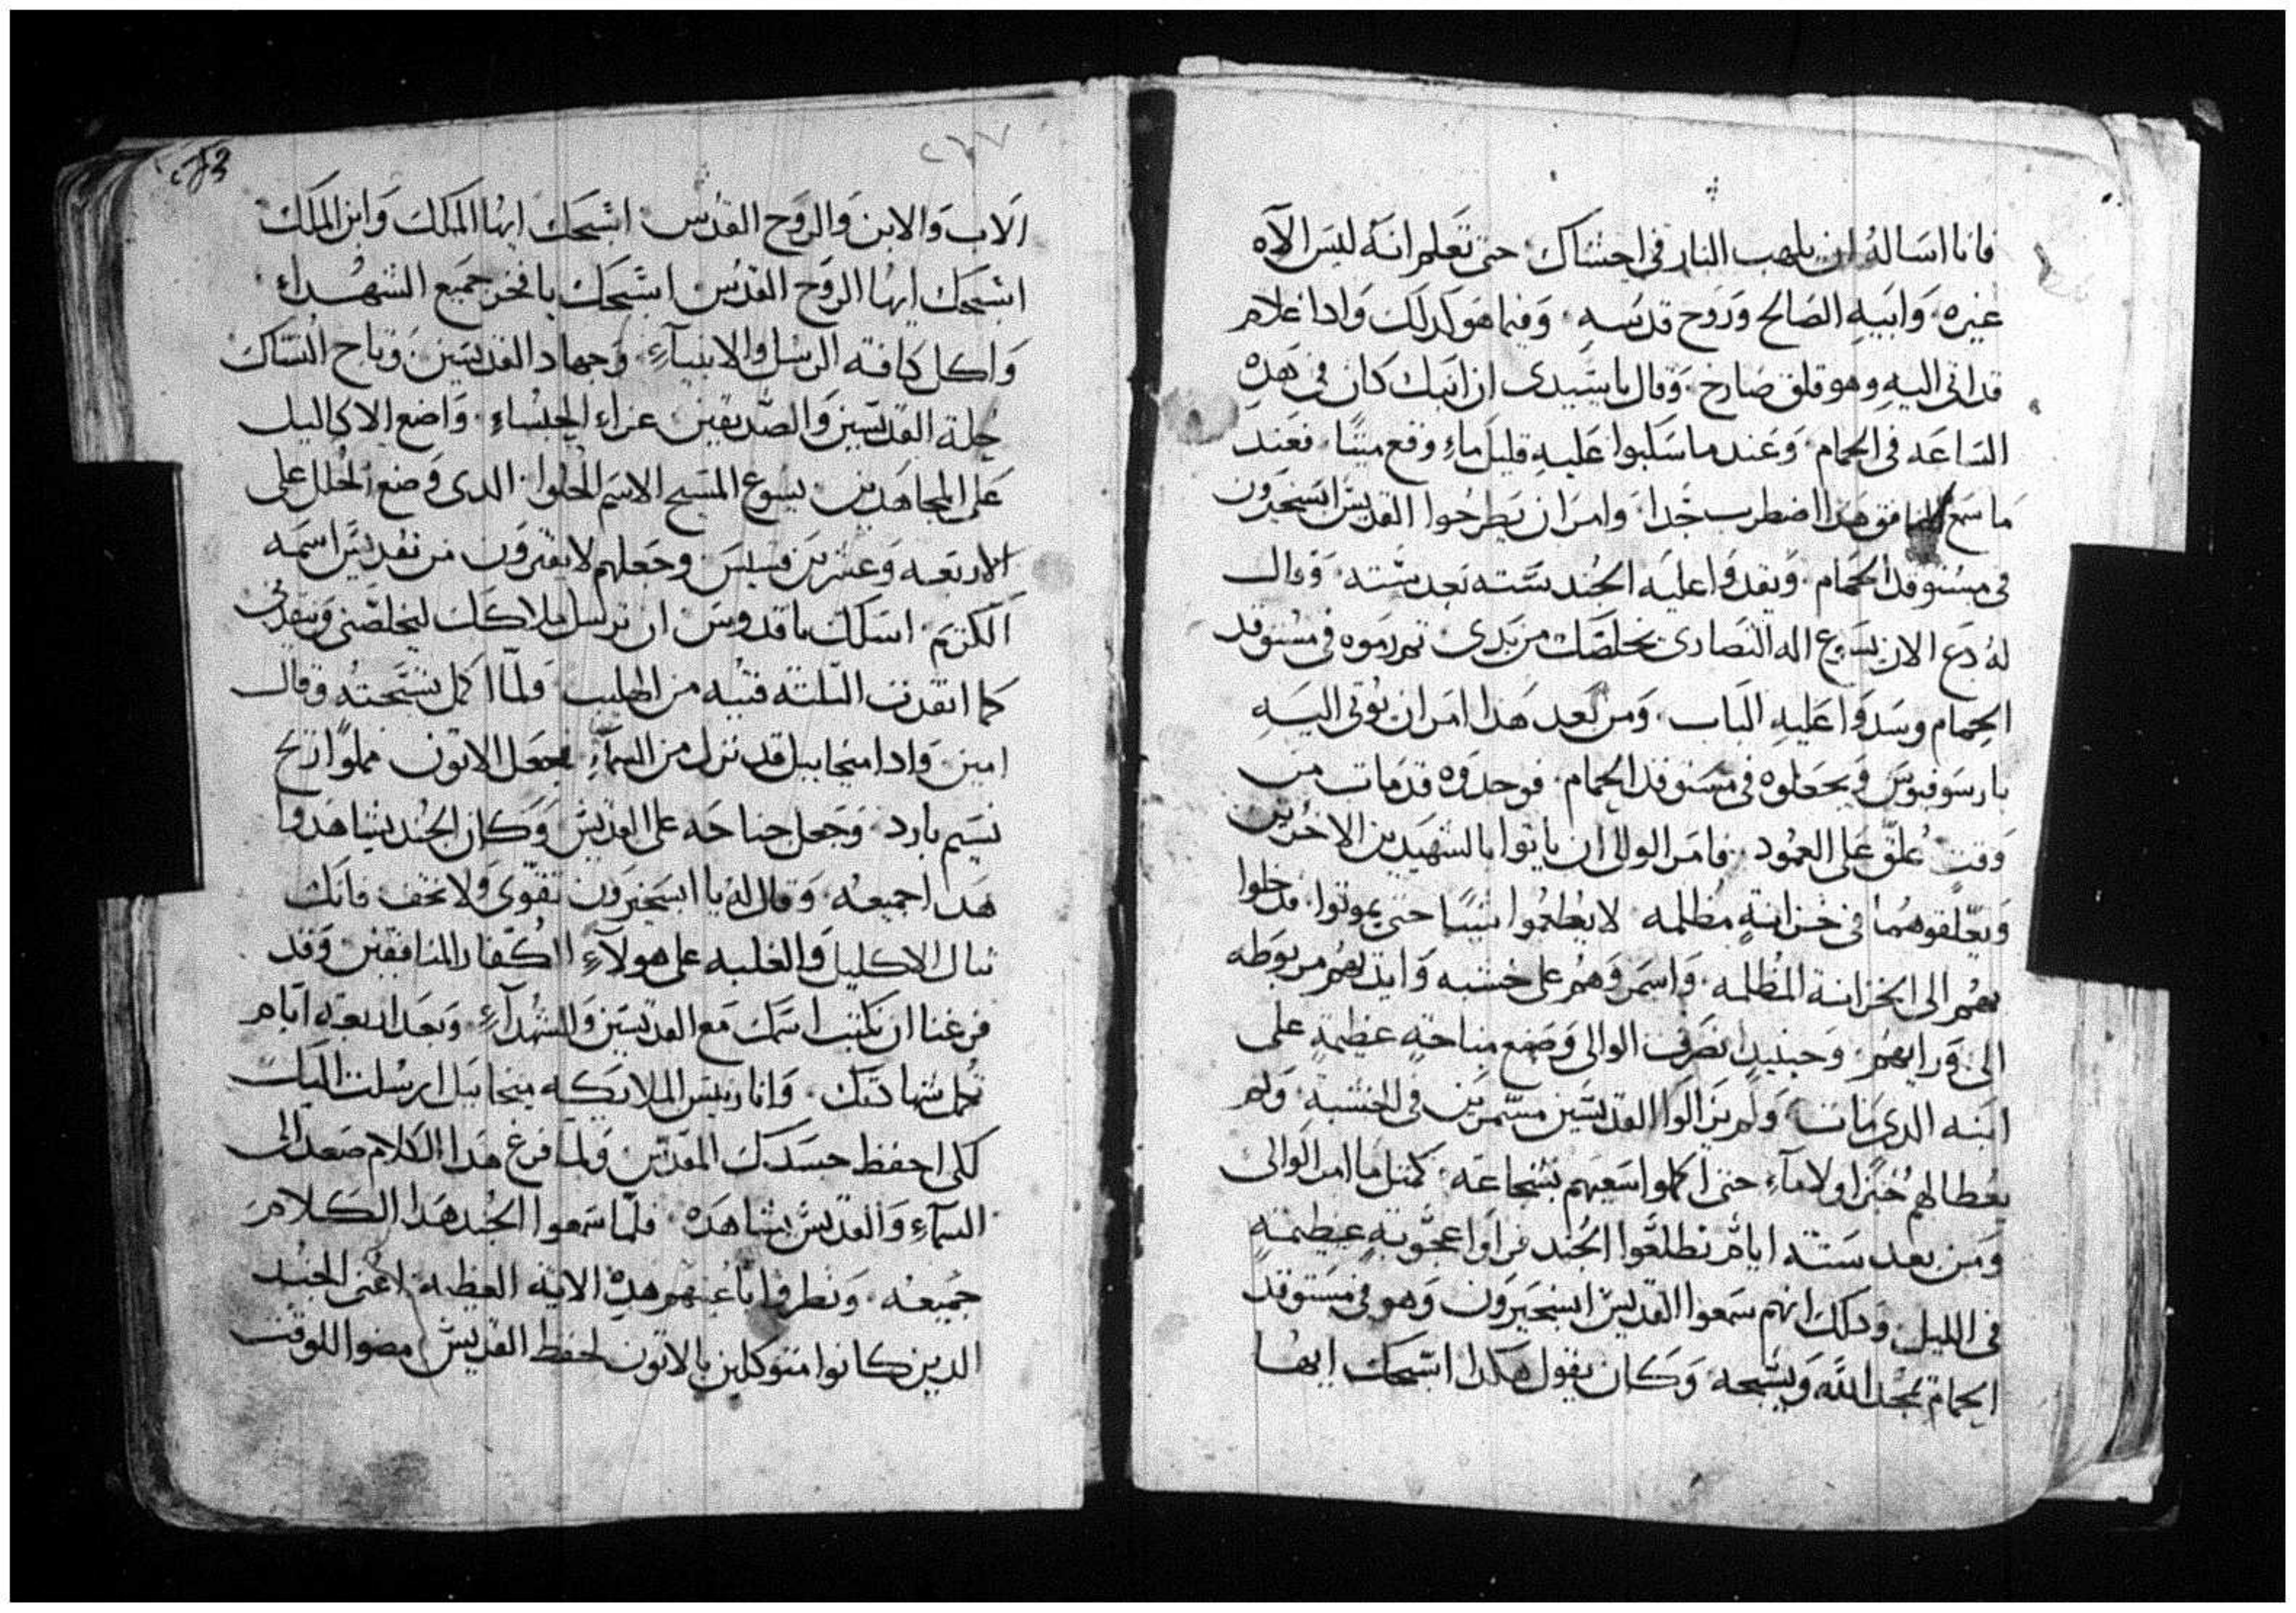 فانا اساله ان يلهب النار في احشاك حتى تعلم انه ليس الاه
غيره وابيه الصالح وروح قدسه وفيما هو كدلك وادا غلام
قد اتى اليه وهو قلق صارخ وقال يا سيدى ان ابنك كان في هده
الساعه في الحمام وعند ما سكبوا عليه قليل ماء وقع ميتا فعند
ما سمع المنافق هدا اضطرب جدا وامر ان يطرحوا القديس ابسخيرون
في مستوقد الحمام ويقدوا عليه الجند سته بعد سته وقال
له دع الان يسوع اله النصارى يخلصك من يدى تم رموه في مستوقد
الحمام وسدوا عليه الباب ومن بعد هدا امر ان يوتى اليه
بارسوفيوس ويجعلوه في مستوقد الحمام فوجدوه قد مات من
وقت عُلق على العمود فامر الوالى ان ياتوا بالشهيدين الاخرين
ويعلقوهما في خزانةٍ مظلمه لا يطعموا شيا حتى يموتوا فدخلوا
بهم الى الخزانة المظلمه واسمروهم على خشبه وايديهم مربوطه
الى ورايهم وحينيد انصرف الوالى وصنع مناحةٍ عظيمةٍ على
ابنه الدى مات ولم يزالوا القديسين مسمرين في الخشبه ولم
يعطا لهم خبزا ولا ماء حتى اكملوا سعيهم بشجاعه كمتل ما امر الوالى
ومن بعد ستة ايام تطلعوا الجند فراوا عجوبةٍ عظيمةٍ
في الليل ودلك انهم سمعوا القديس ابسخيرون وهو في مستوقد
الحمام يمجد الله ويسبحه وكان يقول هكدا اسبحك ايها
الاب والابن والروح القدس اسبحك ايها الملك وابن الملك
اسبحك ايها الروح القدس اسبحك يا فخر جميع الشهداء
واكل كافة الرسل والانبياء وجهاد القديسين وتاج النساك
حلة القديسين والصديقين عزاء الجلساء واضع الاكاليل
على المجاهدين يسوع المسيح الاسم الحلوا الدى وضع الحلل على
الاربعه وعشرين قسيس وجعلهم لا يفترون من تقديس اسمه
الكريم اسلك يا قدوس ان ترسل ملاكك ليخلصني وينقدني
كما انقدت التلتة فتيه من اللهيب ولما اكمل تسبحته وقال
امين وادا ميخاييل قد نزل من السماء فجعل الاتون مملوا ريح
نسيم بارد وجعل جناحه على القديس وكان الجند يشاهدوا
هدا جميعه وقال له يا ابسخيرون تقوى ولا تخف فانك
تنال الاكليل والغلبه على هولاء الكفار المنافقين وقد
فرغنا ان نكتب اسمك مع القديسين والشهداء وبعد اربعة ايام
تكمل شهادتك وانا رييس الملايكه ميخاييل ارسلت اليك
لكى احفظ جسدك المقدس ولما فرغ هدا الكلام صعد الى
السماء والقديس يشاهده فلما سمعوا الجند هدا الكلام
جميعه ونظروا باعينهم هده الاية العظيمه اعنى الجند
الدين كانوا متوكلين بالاتون لحفظ القديس مضوا للوقت